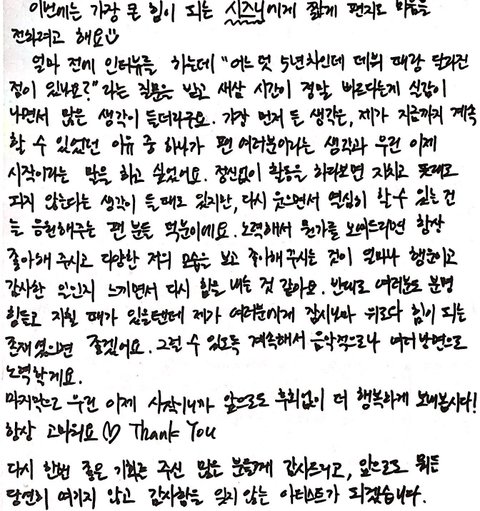 이번에는 가장 큰 힘이 되는 시즈니에게 짧게 편지로 마음을
전하려고 해요☺
얼마 전에 인터뷰를 하는데 "어느덧 5년차인데 데뷔 때랑 달라진
점이 있나요?"라는 질문을 받고 새삼 시간이 정말 빠르다는게 실감이
나면서 많은 생각이 들더라구요. 가장 먼저 든 생각은, 제가 지금까지 계속
할 수 있었던 이유 중 하나가 팬 여러분이라는 생각과 우린 이제
시작이라는 말을 하고 싶었어요. 정신없이 활동을 하다보면 지치고 뜻대로
되지 않는다는 생각이 들 때도 있지만, 다시 웃으면서 열심히 할 수 있는 건
늘 응원해주는 팬 분들 덕분이에요. 노력해서 뭔가를 보여드리면 항상
좋아해 주시고 다양한 저의 모습을 보고 좋아해주시는 것이 얼마나 행운이고
감사한 일인지 느끼면서 다시 힘을 내는 것 같아요. 반대로 여러분도 분명
힘들고 지칠 때가 있을텐데 제가 여러분에게 잠시나마 위로와 힘이 되는
존재였으면 좋겠어요. 그럴 수 있도록 계속해서 음악적으로나 여러방면으로
노력할게요.
마지막으로 우린 이제 시작이니까 앞으로도 후회없이 더 행복하게 보내봅시다!
항상 고마워요 ♡ Thank You
다시 한번 좋은 기회를 주신 많은 분들께 감사드리고, 앞으로도 뭐든
당연히 여기지 않고 감사함을 잊지 않는 아티스트가 되겠습니다.